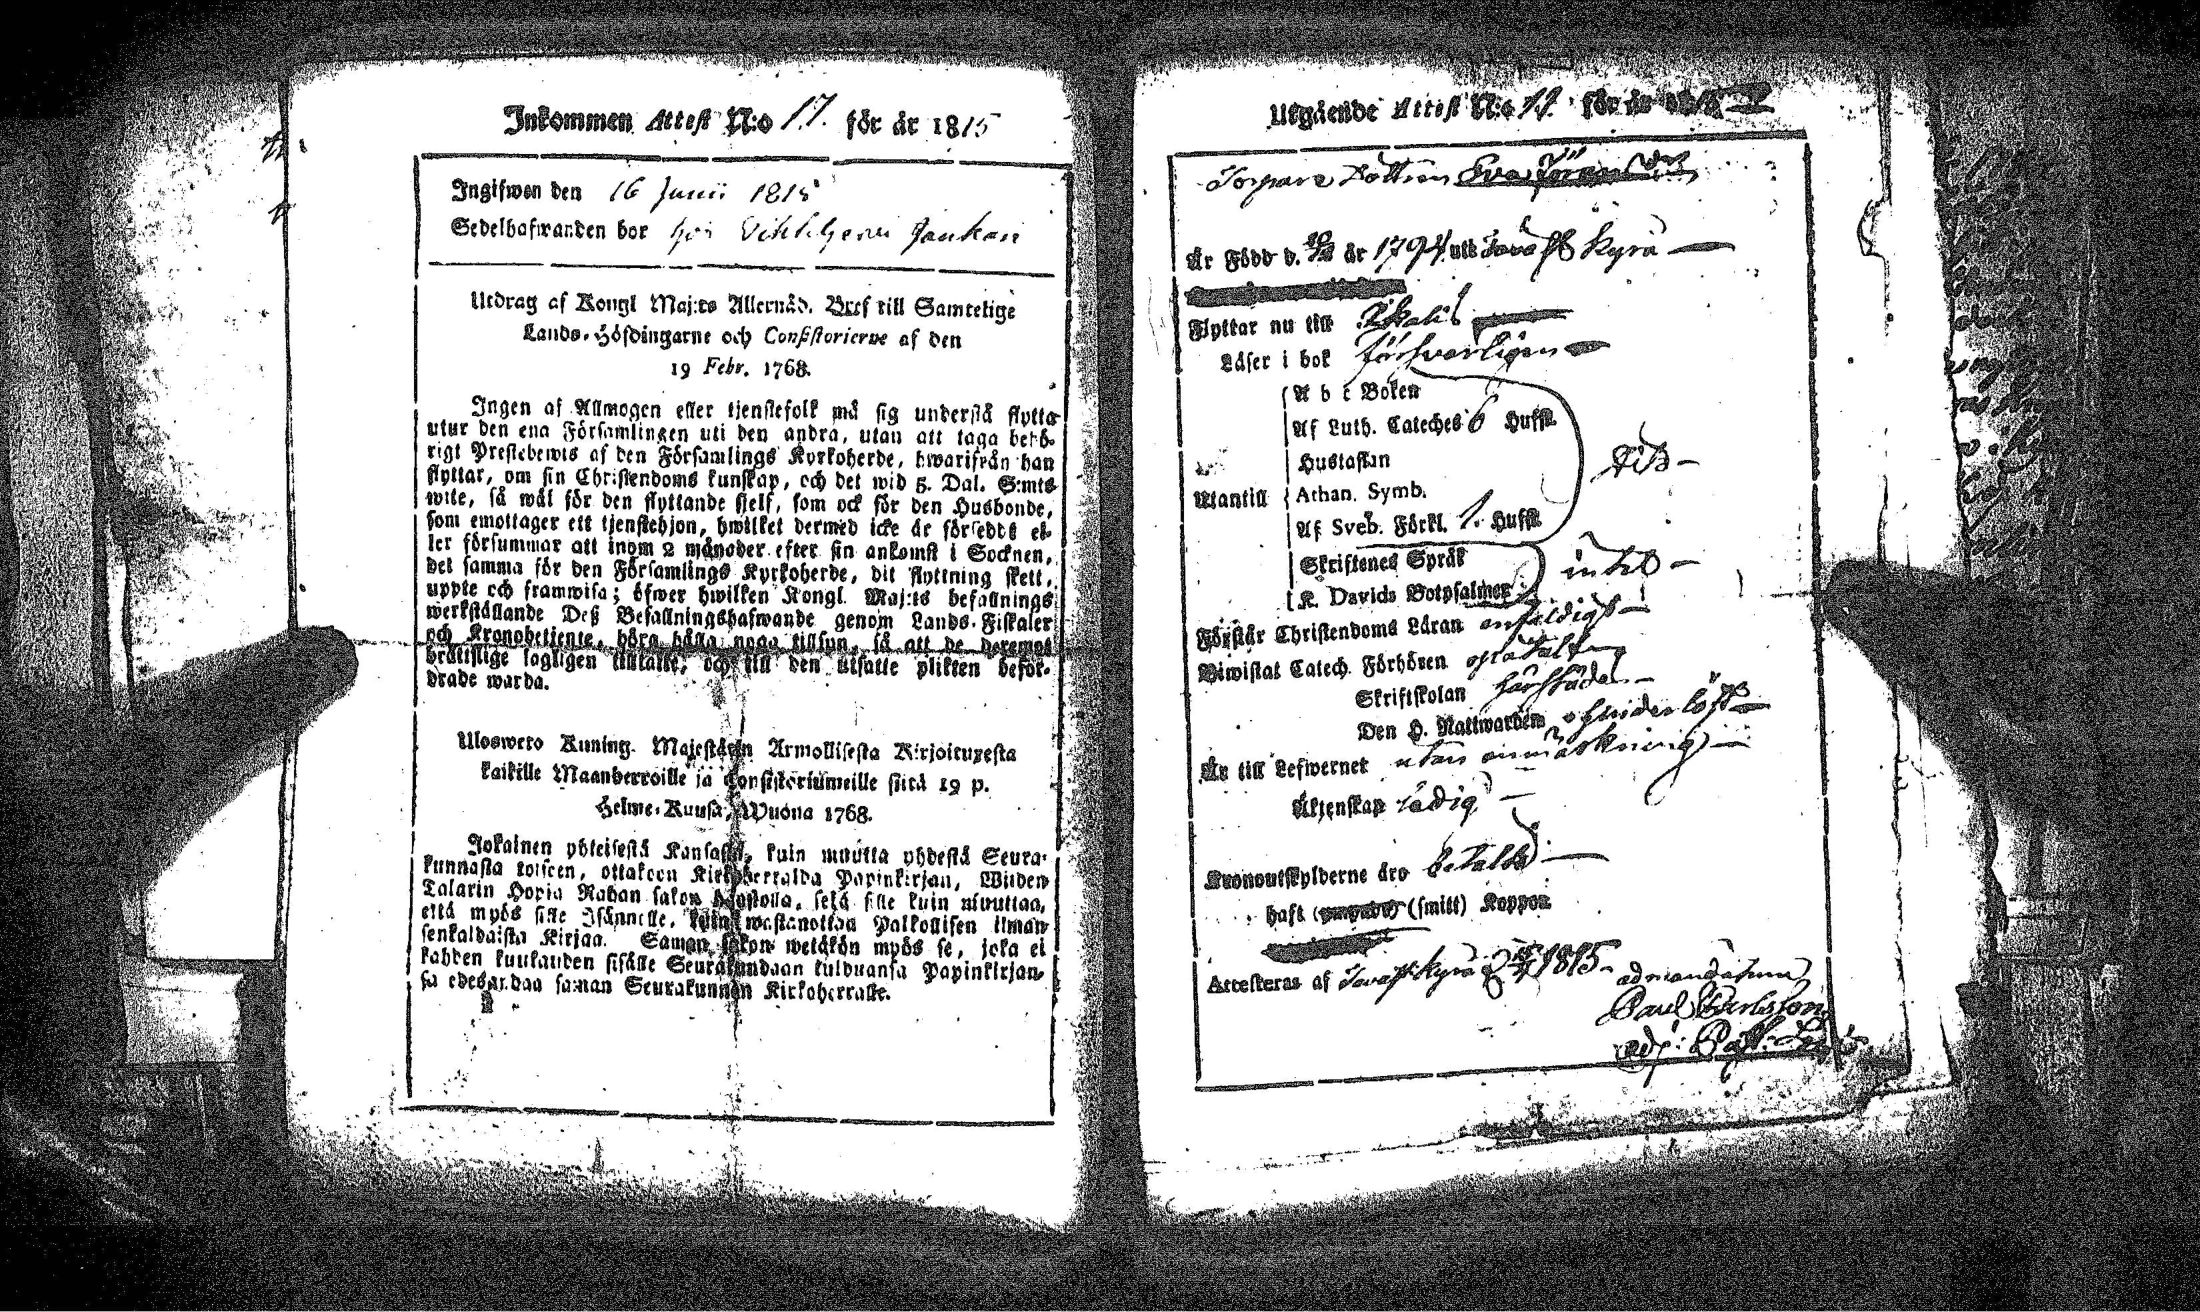 Inkommen Attest N:o 17. för år 1815
Ingifwen den 16 Junii 1815
Sedelhafwanden bor hos
Utdrag af Kongl Maj:ts Allernåd. Bref till Samtelige
Lands-Höfdingarne och Consistorierne af den
19 Febr. 1768.
Ingen af Allmogen eller tjenstefolk må sig understå flytta
utur den ena Församlingen uti den andra, utan att taga behö-
rigt Prestebewis af den Församlings Kyrkoherde, hwarifrån han
flyttar, om sin Christendoms kunskap, och det wid 5. Dal. S:mts
wite, så wäl för den flyttande sjelf, som ock för den Husbonde,
som emottager ett tjenstehjon, hwilket dermed icke är försedt el-
ler försummar att inom 2 månader efter sin ankomst i Socknen,
det samma för den Församlings Kyrkoherde, dit flyttning skett,
uppte och framwisa; öfwer hwilken Kongl. Maj:ts befallnings
werkställande Deß Befallningshafwande genom Lands-Fiskaler
och Kronobetjente, böra hålla noga tillsyn, så att de deremot
bråttslige lagligen tilltalte, och till den utsatte plikten beför-
drade warda.
Uloswero Kuning. Majestätin Armollisesta Kirjoituxesta
kaikille Maanherroille ja Consistoriumeille siitä 19 p.
Helme-Kuusa, Wuona 1768.
Jokainen yhteisestä Kansasta, kuin muutta yhdestä Seura-
kunnasta toiseen, ottakoon Kirkoherralda Papinkirjan, Wiiden
Talarin Hopia Rahan sakon haastolla, sekä sille kuin muuttaa,
että myös sille Isännelle, kuin wastanottaa Palkollisen ilman
senkaldaista Kirjaa. Saman sakon wetäkön myös se, joka ei
kahden kuukauden sisälle Seurakundaan tulduansa Papinkirjan-
sa edesandaa saman Seurakunnan Kirkoherralle.
Utgående Attest N:o 11. för år
Torpare Dottren Eva
Är Född d. år 1794 uti Kyro
Flyttar nu till
Läser i bok försvarligen
A b c Boken
Af Luth. Cateches 6 Hufst.
Hustaflan
Athan. Symb.
Utantill
Af Sveb. Förkl. 1. Hufst.
Skriftenes Språk intet
K. Davids Botpsalmer
Förstår Christendoms Läran enfaldigt
Biwistat Catech. Förhören
Skriftskolan
Den H. Nattwarden
Är till Lefwernet utan anmärkning
Äktenskap ledig
Kronoutskylderne äro betalde
haft (smitt) Koppor
Attesteras af Kyro d. 1815. ad mandatum
Paul Carlsson
adj: